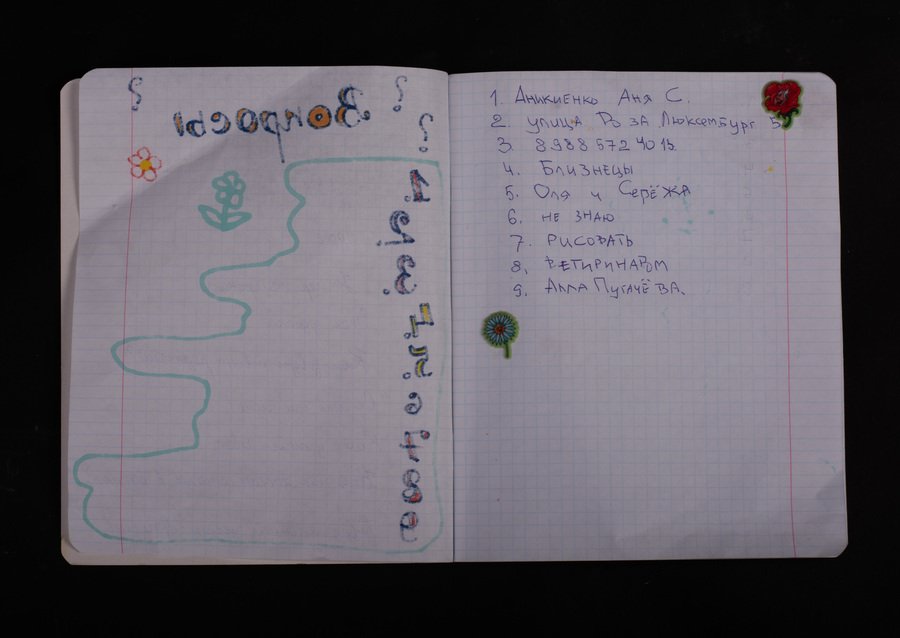 Вопросы
? ? ?
1.
2.
3.
4.
5.
6.
7.
8.
9.
1. Аникиенко Аня С.
2. улица Ро за Люксембург 5
3. 8 988 572 40 15.
4. Близнецы
5. Оля и Серёжа
6. не знаю
7. рисовать
8. ветиринаром
9. Алла Пугачёва.